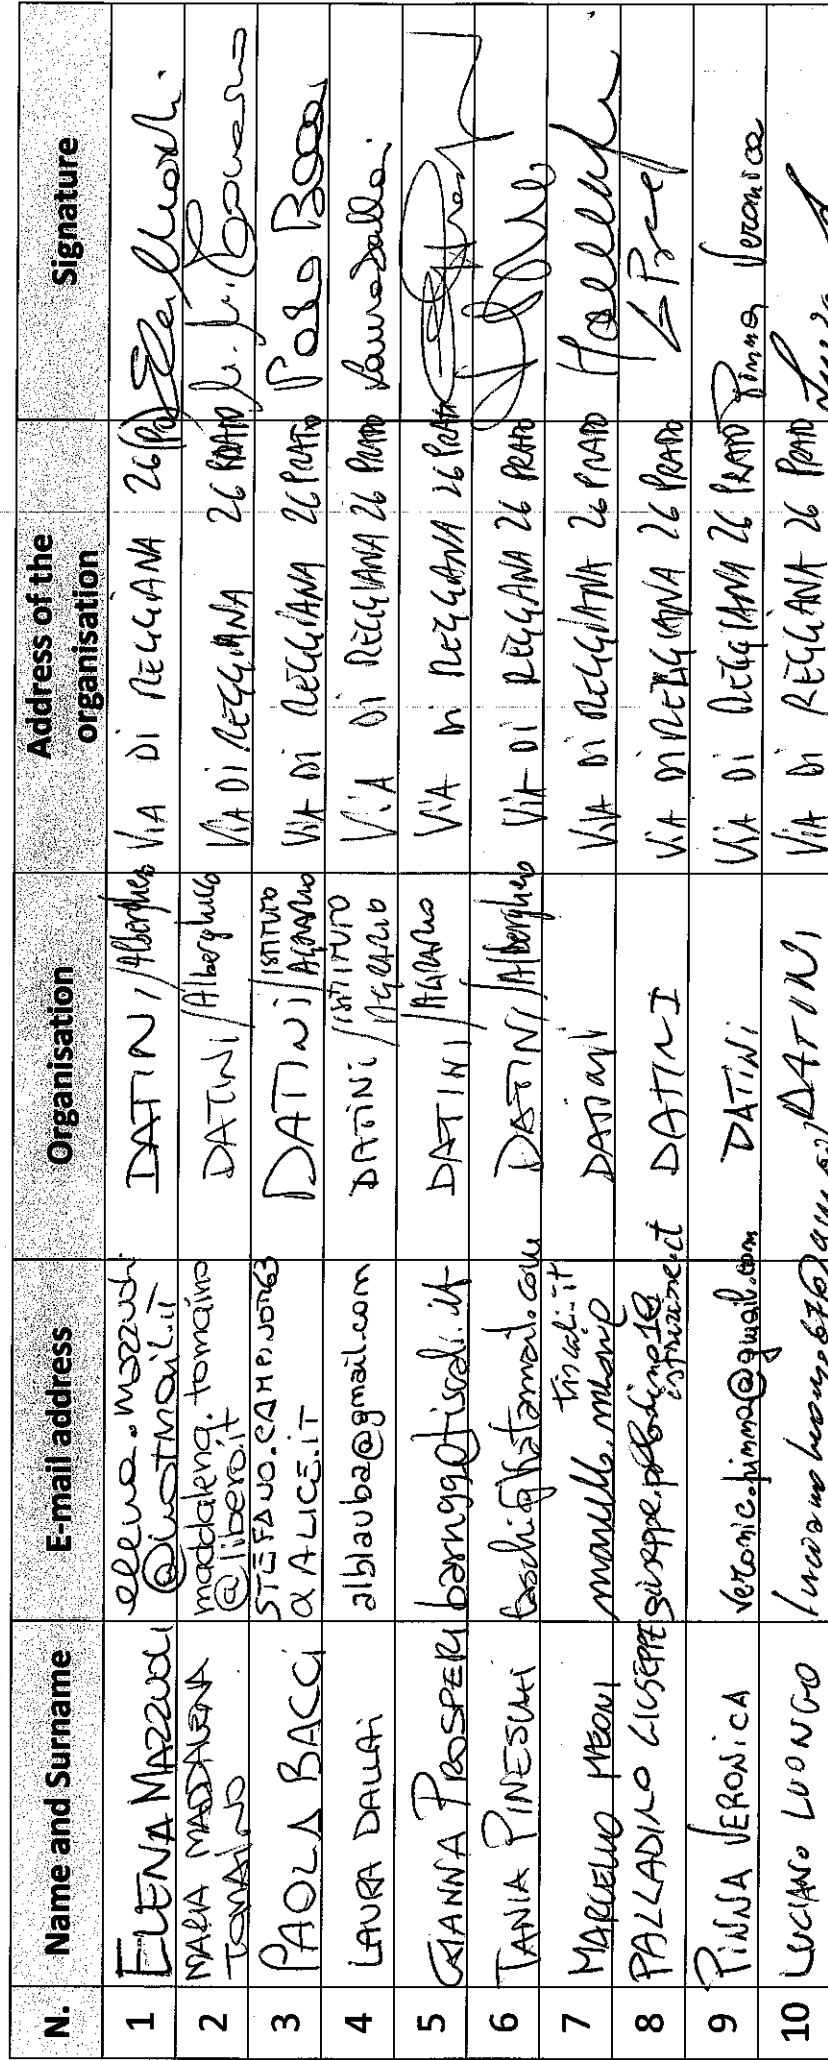 N. Name and Surname E-mail address Organisation Address of the organisation Signature
1 ELENA MAZZUOLI elena.mazzuoli @hotmail.it DATINI/Alberghiero VIA DI REGGIANA 26
2 MARIA MADDALENA TOMAINO maddalena.tomaino @libero.it DATINI/Alberghiero VIA DI REGGIANA 26 PRATO
3 PAOLA BACCI @ALICE.IT DATINI/ISTITUTO AGRARIO VIA DI REGGIANA 26 PRATO Paola Bacci
4 LAURA DALLAI alblauba@gmail.com DATINI/ISTITUTO AGRARIO VIA DI REGGIANA 26 PRATO Laura Dallai
5 GIANNA PROSPERI DATINI/AGRARIO VIA DI REGGIANA 26 PRATO
6 TANIA PINESCHI DATINI/Alberghiero VIA DI REGGIANA 26 PRATO
7 MARCELLO MEONI tiscali.it DATINI VIA DI REGGIANA 26 PRATO
8 PALLADINO GIUSEPPE DATINI VIA DI REGGIANA 26 PRATO
9 PINNA VERONICA veronic.pinna@gmail.com DATINI VIA DI REGGIANA 26 PRATO Pinna Veronica
10 LUCIANO LUONGO DATINI VIA DI REGGIANA 26 PRATO